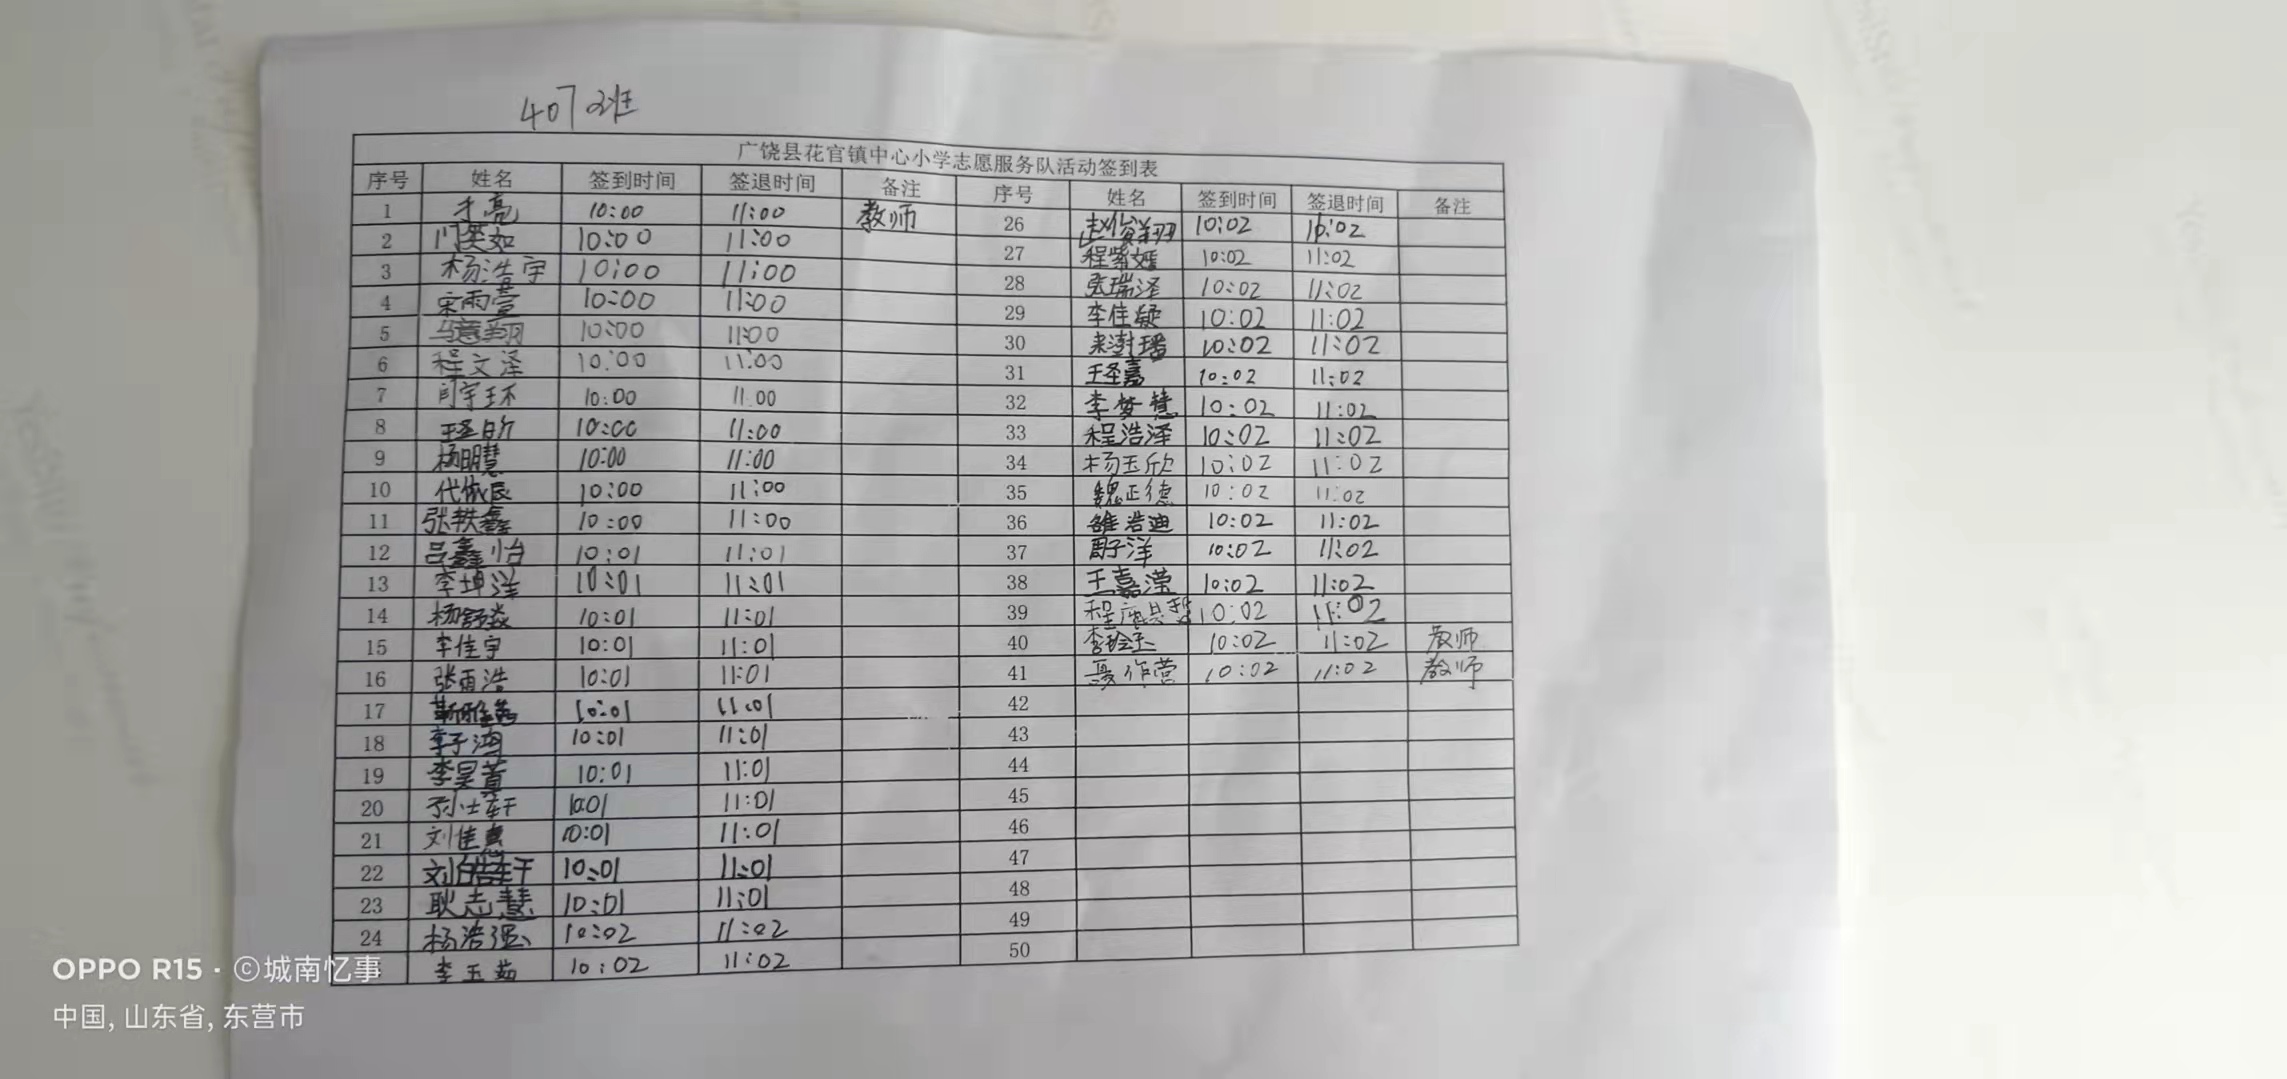 407班
广饶县花官镇中心小学志愿服务队活动签到表
序号 姓名 签到时间 签退时间 备注 序号 姓名 签到时间 签退时间 备注
1 亮 10:00 11:00 教师 26 赵俊翔 10:02 16:02
2 门奕如 10:00 11:00 27 程紫嫣 10:02 11:02
3 杨浩宇 10:00 11:00 28 张瑞泽 10:02 11:02
4 宋雨萱 10:00 11:00 29 李佳凝 10:02 11:02
5 翔 10:00 11:00 30 10:02 11:02
6 程文泽 10:00 11:00 31 王圣嘉 10:02 11:02
7 闫宇环 10:00 11:00 32 李梦慧 10:02 11:02
8 王圣昕 10:00 11:00 33 程浩泽 10:02 11:02
9 杨明慧 10:00 11:00 34 杨玉欣 10:02 11:02
10 代依辰 10:00 11:00 35 魏正德 10:02 11:02
11 张轶鑫 10:00 11:00 36 浩迪 10:02 11:02
12 吕鑫怡 10:01 11:01 37 周子洋 10:02 11:02
13 李坤洋 10:01 11:01 38 王嘉滢 10:02 11:02
14 杨舒焱 10:01 11:01 39 程 10:02 11:02
15 李佳宇 10:01 11:01 40 李 10:02 11:02 教师
16 张雨浩 10:01 11:01 41 聂作营 10:02 11:02 教师
17 靳雅 10:01 11:01 42
18 李子涵 10:01 11:01 43
19 李昊 10:01 11:01 44
20 孙士轩 10:01 11:01 45
21 刘佳惠 10:01 11:01 46
22 刘皓轩 10:01 11:01 47
23 耿志慧 10:01 11:01 48
24 杨浩强 10:02 11:02 49
李玉茹 10:02 11:02 50
OPPO R15 · ©城南忆事
中国, 山东省, 东营市